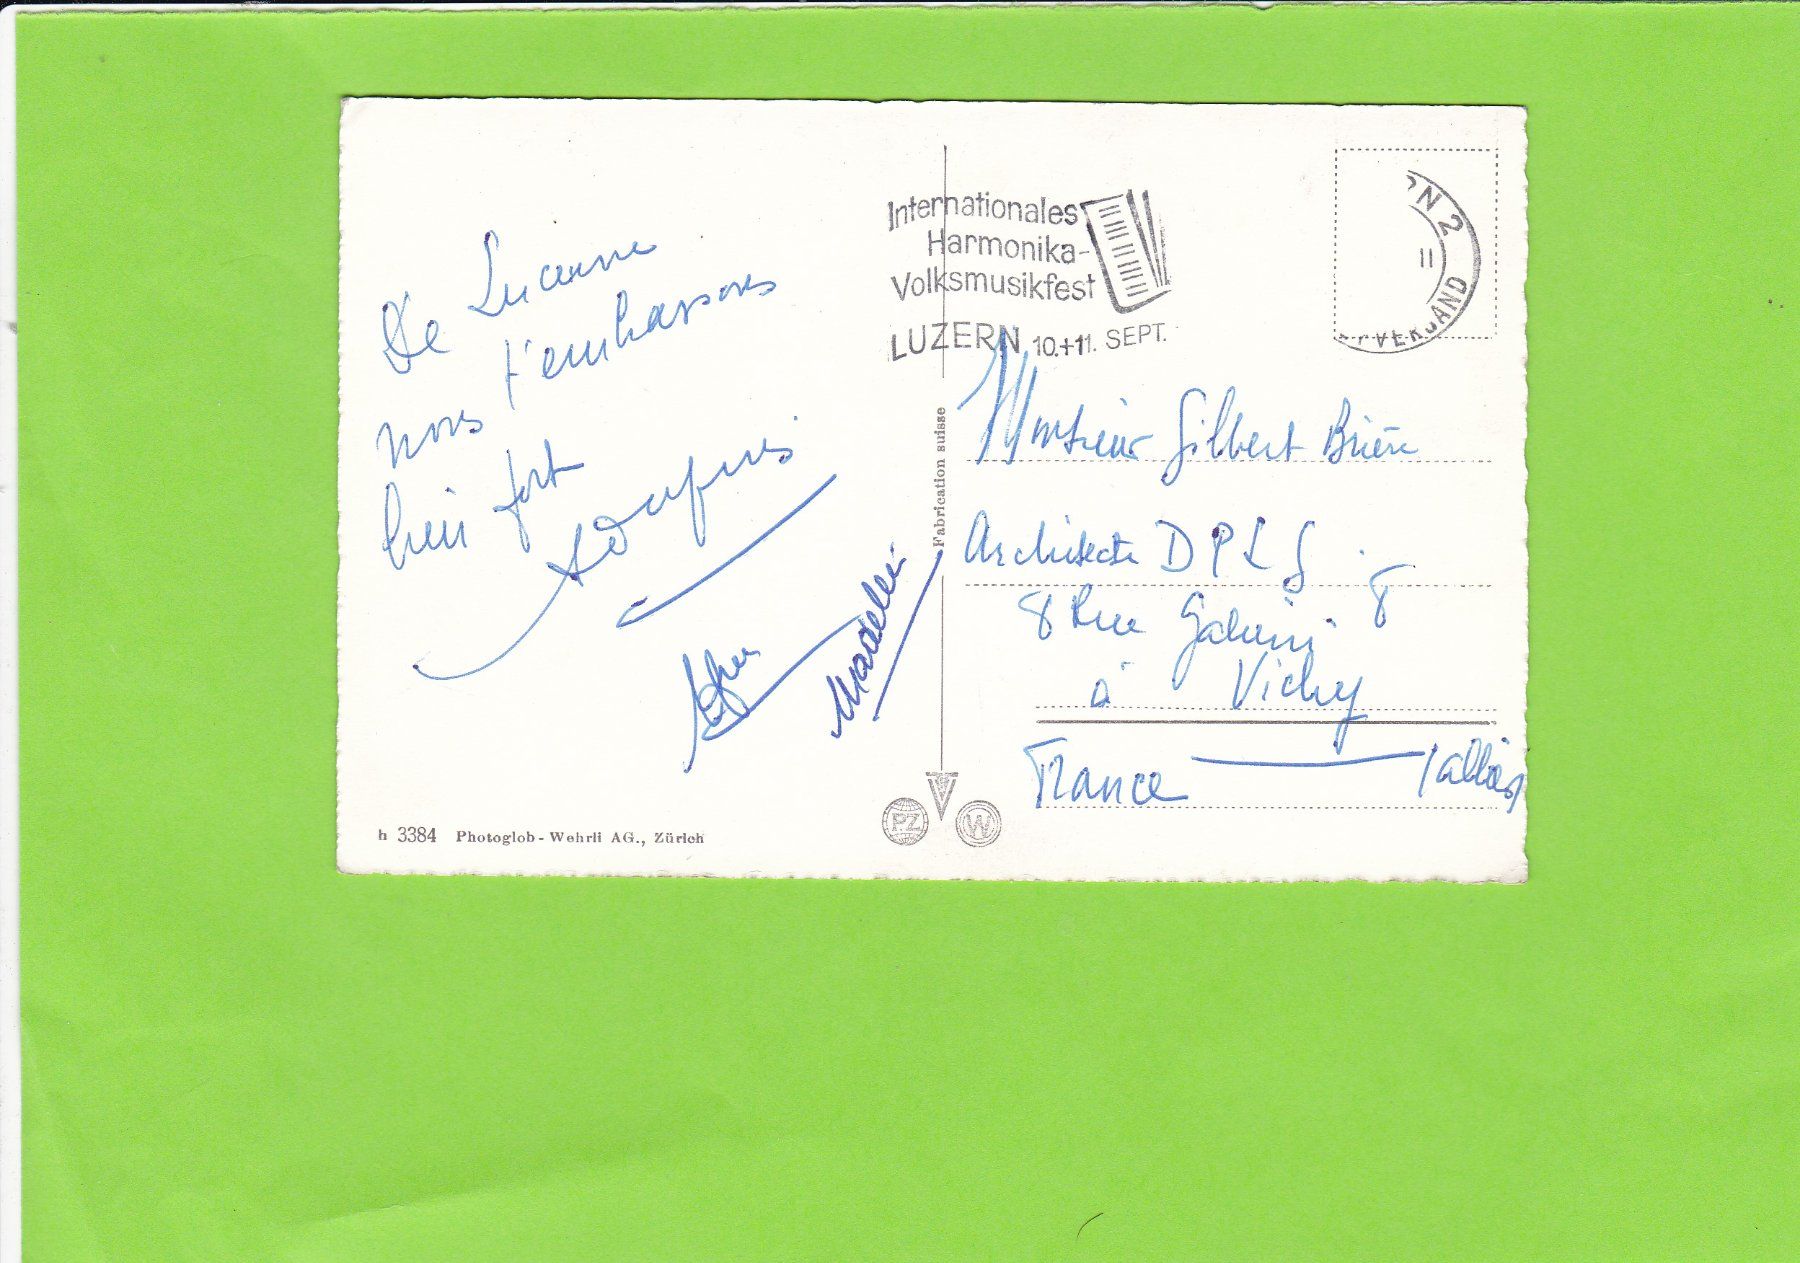 De Lucerne
nous t'embrassons
bien fort
Madelei
Internationales
Harmonika-
Volksmusikfest
LUZERN 10.+11. SEPT.
RN 2
II
VERSAND
Fabrication suisse
Monsieur Gilbert Brière
Architecte D P L G
8 Rue 8
à Vichy
France (allier)
PZ
W
h 3384 Photoglob-Wehrli AG., Zürich